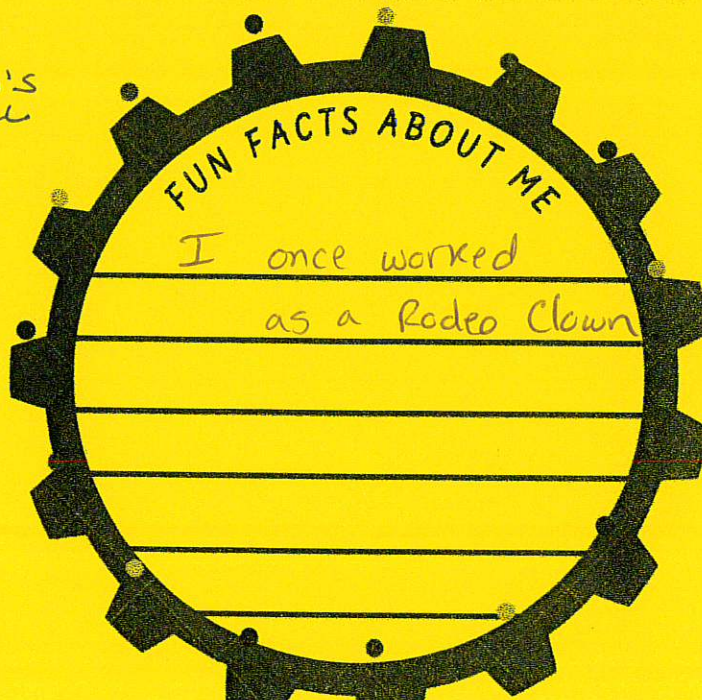 FUN FACTS ABOUT ME
I once worked
as a Rodeo Clown